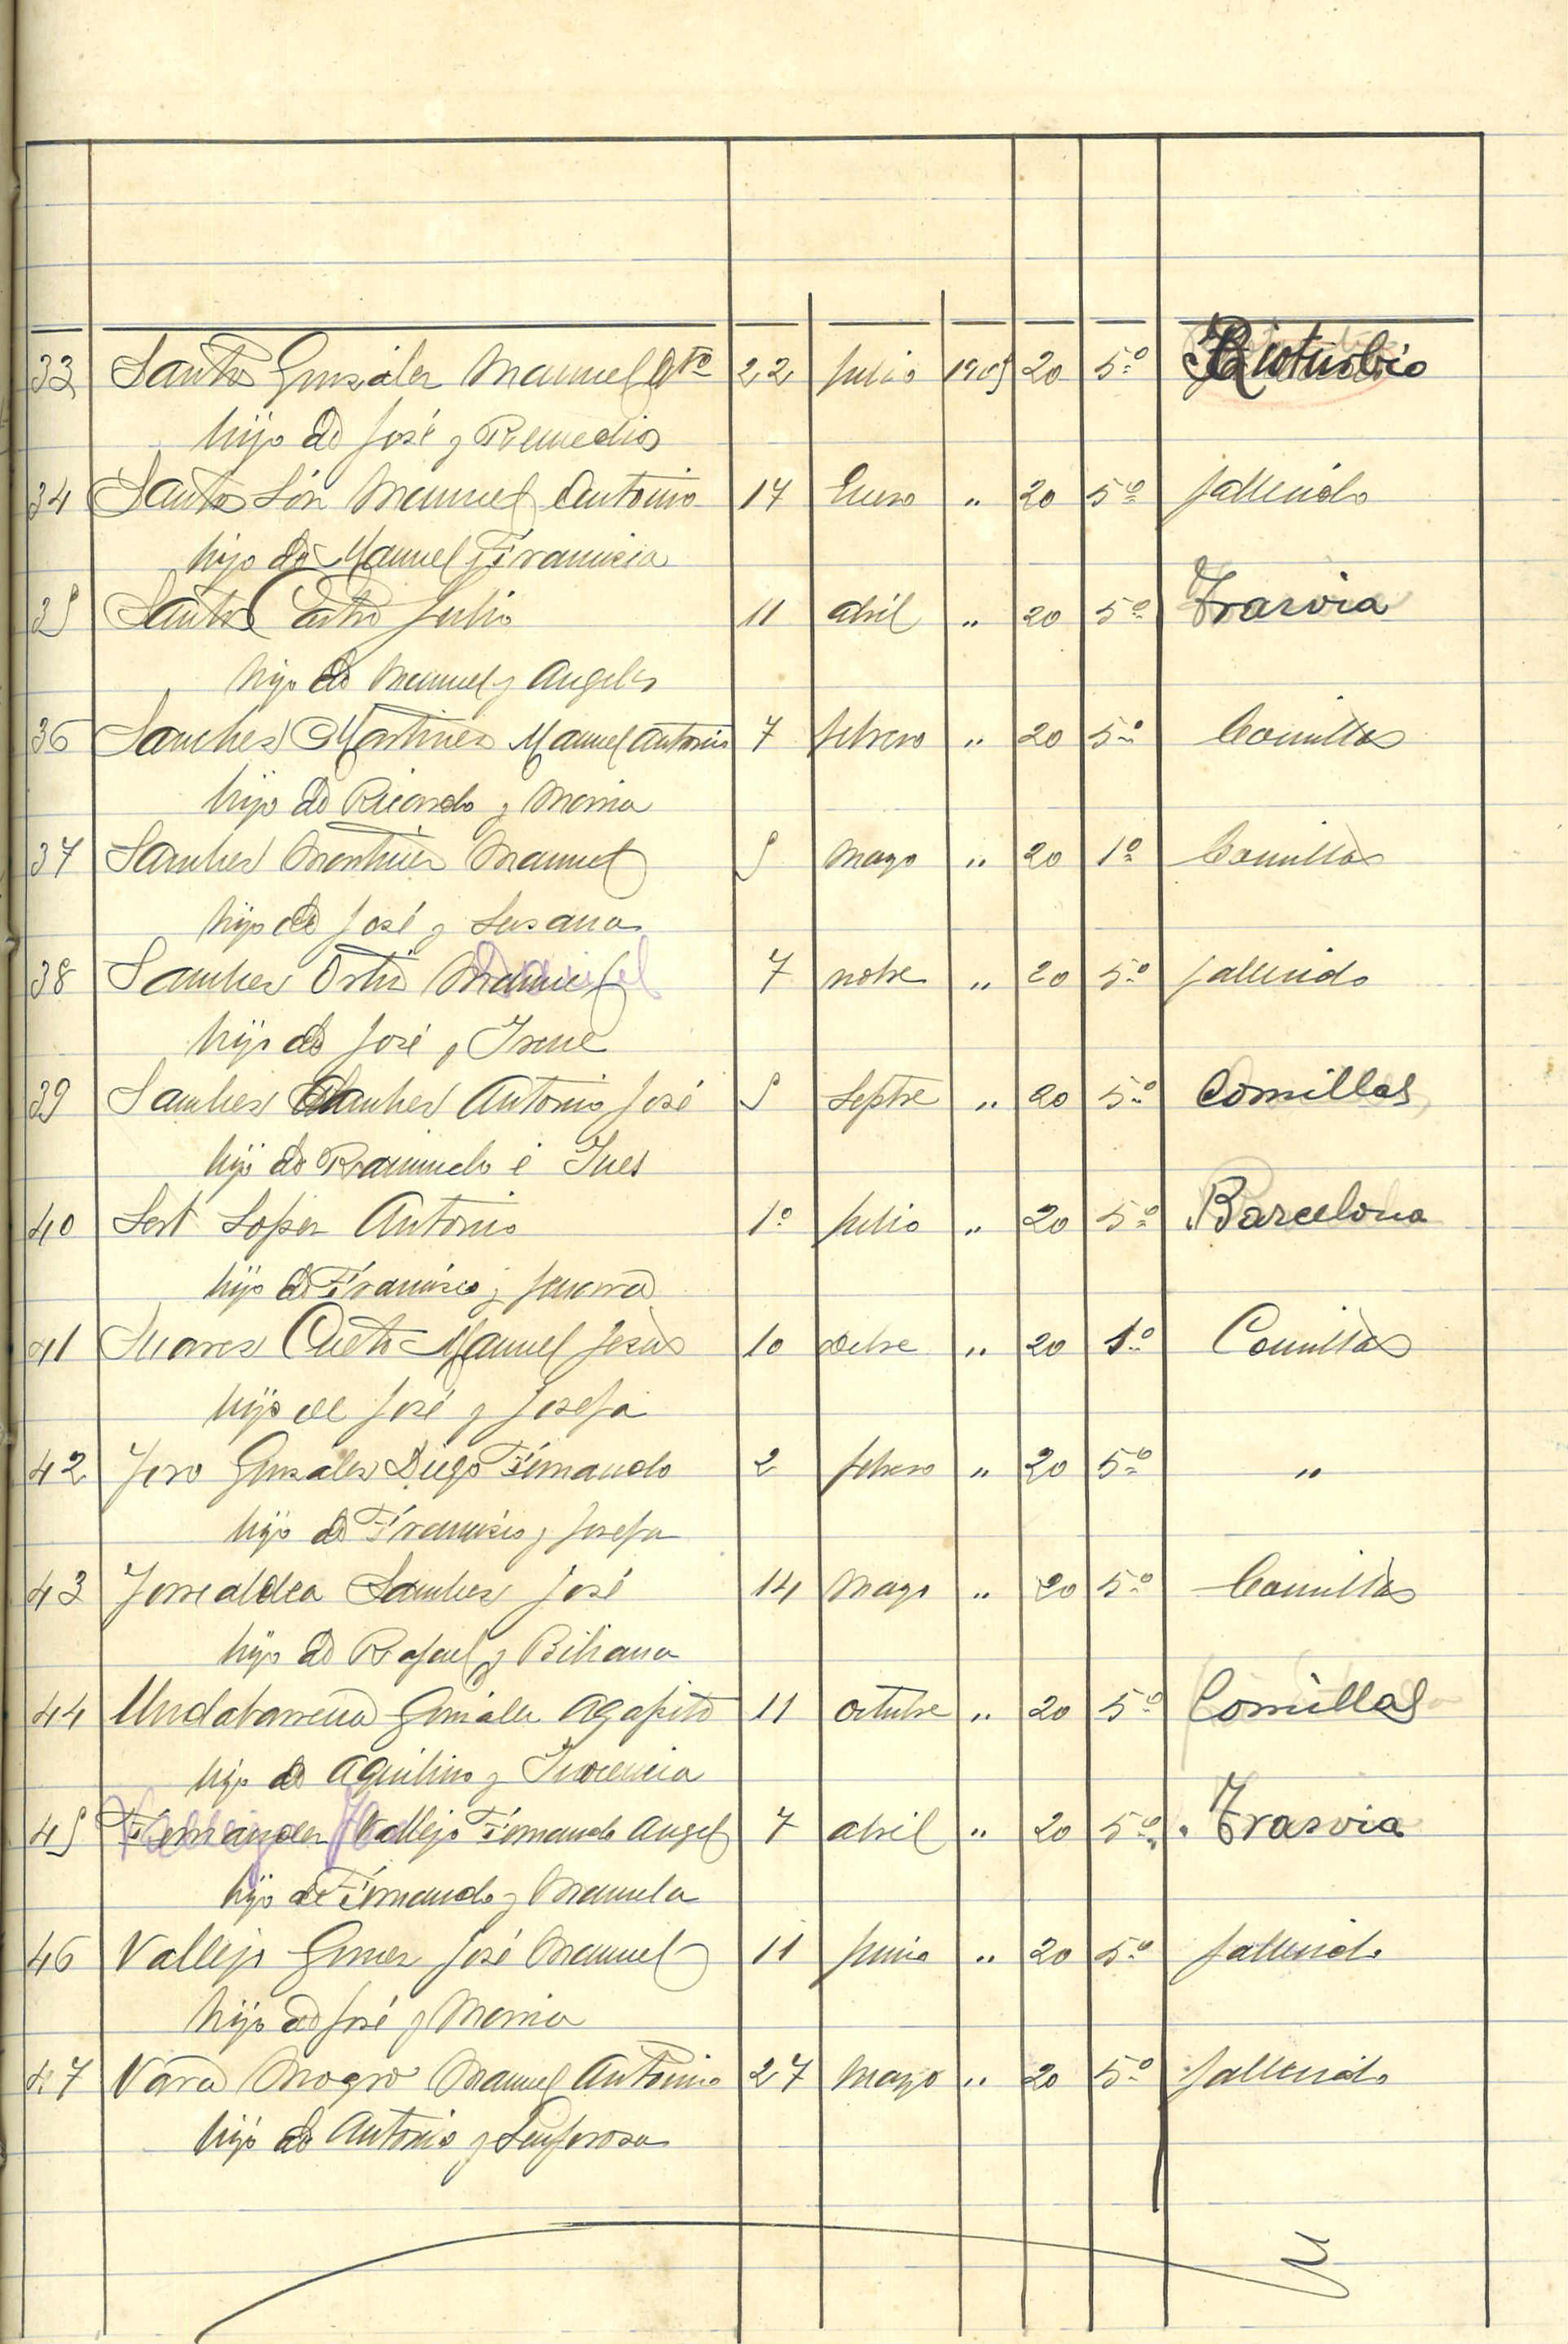 33 Santos Gonzalez Manuel Ato 22 Julio 1905 20 5º Rioturbio
hijo de José y Remedios
34 Santos Són Manuel Antonio 17 Enero " 20 5º fallecido
hijo de Manuel y Francisca
35 Santos Castro Julio 11 abril " 20 5º Trasvia
hijo de Manuel y Angeles
36 Sanchez Martinez Manuel Antonio 7 febrero " 20 5º Comillas
hijo de Ricardo y Maria
37 Sanchez Martinez Manuel 5 Mayo " 20 1º Comillas
hijo de José y Susana
38 Sanchez Ortiz Manuel Daniel 7 nobre " 20 5º fallecido
hijo de José y Irene
39 Sanchez Sanchez Antonio José 5 Septre " 20 5º Comillas
hijo de Raimundo é Ines
40 Sert Lopez Antonio 1º Julio " 20 5º Barcelona
hijo de Francisco y
41 Suarez Cueto Manuel Jesús 10 octbre " 20 1º Comillas
hijo de José y Josefa
42 Toro Gonzalez Diego Fernando 2 febrero " 20 5º "
hijo de Francisco y Josefa
43 Torrealdea Sanchez José 14 Mayo " 20 5º Comillas
hijo de Rafael y Bibiana
44 Undabarrena Gonzalez Agapito 11 octubre " 20 5º Comillas
hijo de Aquilino y Inocencia
45 Fernandez Vallejo Fernando Angel 7 abril " 20 5º Trasvia
hijo de Fernando y Manuela
46 Vallejo Gomez José Manuel 11 Junio " 20 5º fallecido
hijo de José y Maria
47 Vara Mogro Manuel Antonio 27 Mayo " 20 5º fallecido
hijo de Antonio y Sinforosa